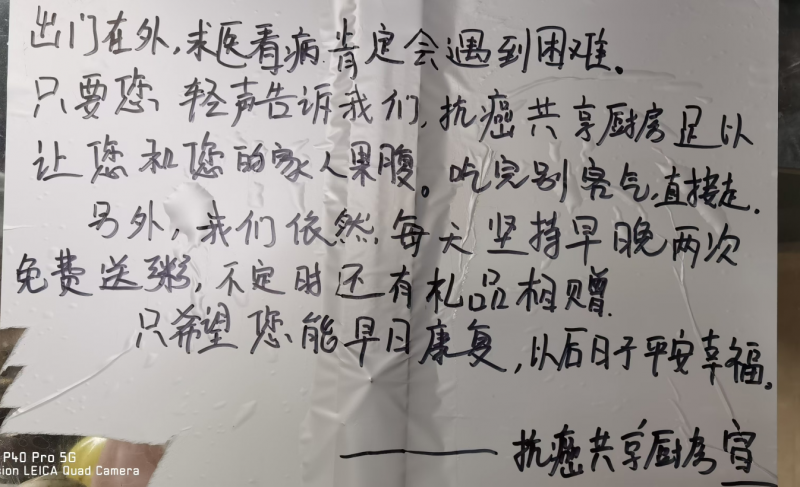 出门在外，求医看病肯定会遇到困难。
只要您，轻声告诉我们，抗癌共享厨房足以
让您和您的家人果腹。吃完别客气，直接走．
另外，我们依然，每天坚持早晚两次
免费送粥，不定时还有礼品相赠．
只希望您能早日康复，以后日子平安幸福．
——— 抗癌共享厨房宣
P40 Pro 5G
sion LEICA Quad Camera